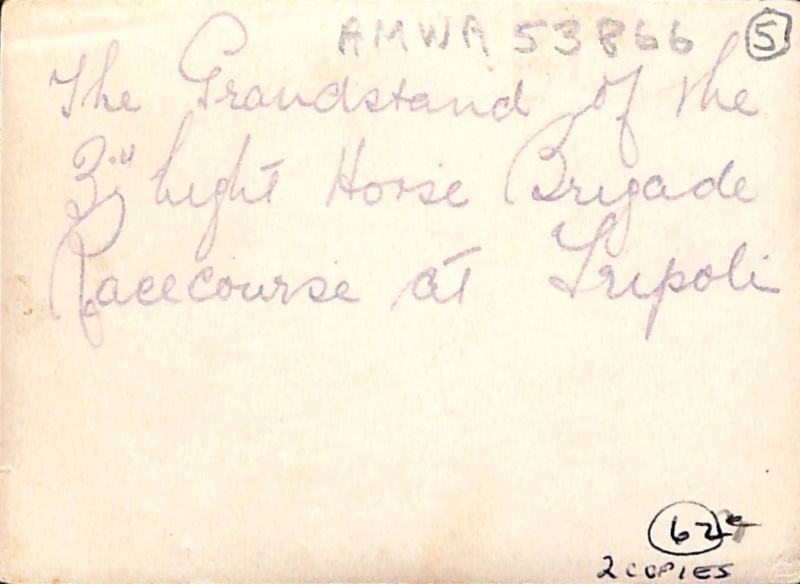 AMWA 53866 5
The Grandstand of the
3rd Light Horse Brigade
Racecourse at Tripoli
62
2 COPIES